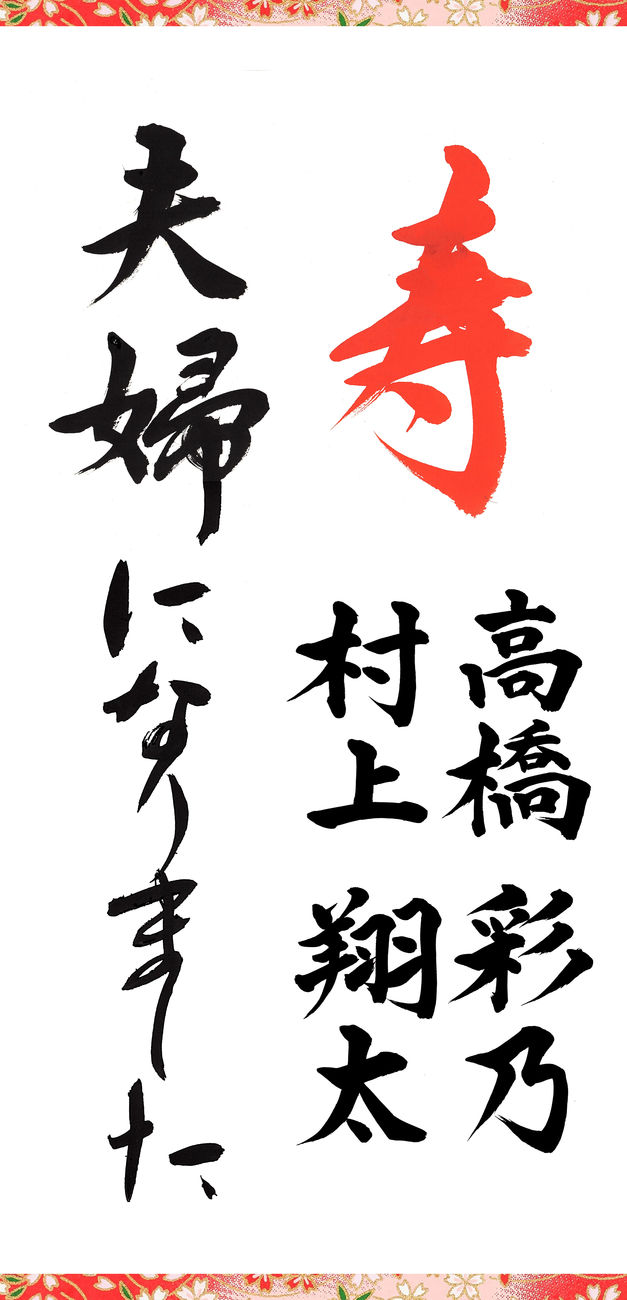 寿
高橋 彩乃
村上 翔太
夫婦になりました